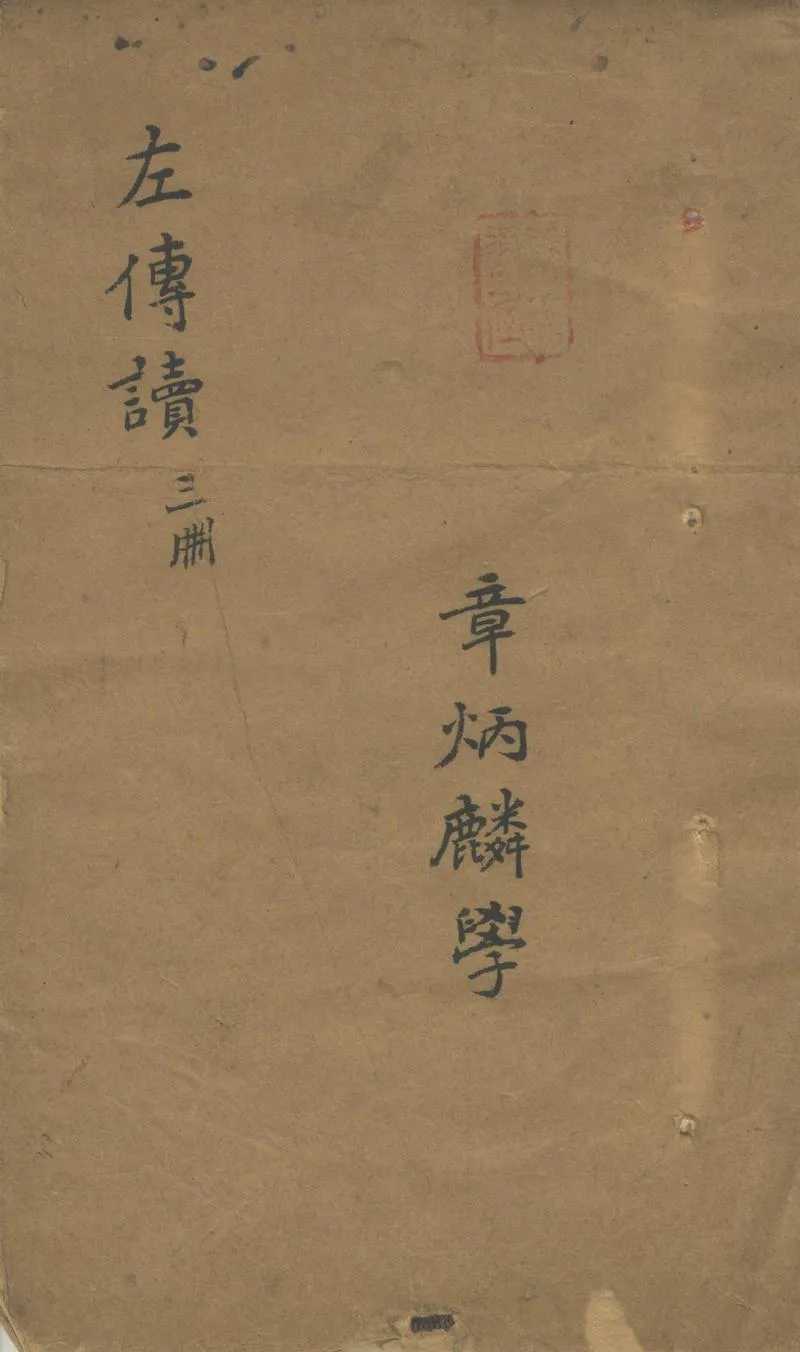 章炳麟學
左傳讀 三册